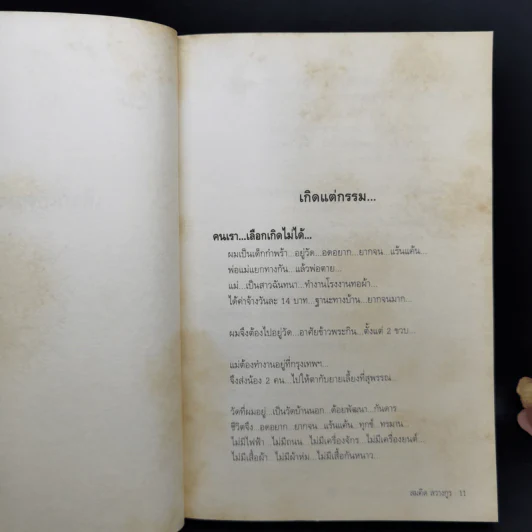 เกิดแต่กรรม...
คนเรา...เลือกเกิดไม่ได้...
ผมเป็นเด็กกำพร้า...อยู่วัด...อดอยาก...ยากจน...แร้นแค้น...
พ่อแม่แยกทางกัน...แล้วพ่อตาย...
แม่...เป็นสาวฉันทนา...ทำงานโรงงานทอผ้า...
ได้ค่าจ้างวันละ 14 บาท...ฐานะทางบ้าน...ยากจนมาก...
ผมจึงต้องไปอยู่วัด...อาศัยข้าวพระกิน...ตั้งแต่ 2 ขวบ...
แม่ต้องทำงานอยู่ที่กรุงเทพฯ...
จึงส่งน้อง 2 คน...ไปให้ตากับยายเลี้ยงที่สุพรรณ...
วัดที่ผมอยู่...เป็นวัดบ้านนอก...ด้อยพัฒนา...กันดาร
ชีวิตจึง...อดอยาก...ยากจน...แร้นแค้น...ทุกข์...ทรมาน...
ไม่มีไฟฟ้า...ไม่มีถนน...ไม่มีเครื่องจักร...ไม่มีเครื่องยนต์...
ไม่มีเสื้อผ้า...ไม่มีผ้าห่ม...ไม่มีเสื้อกันหนาว...
สมคิด ลวางกูร 11